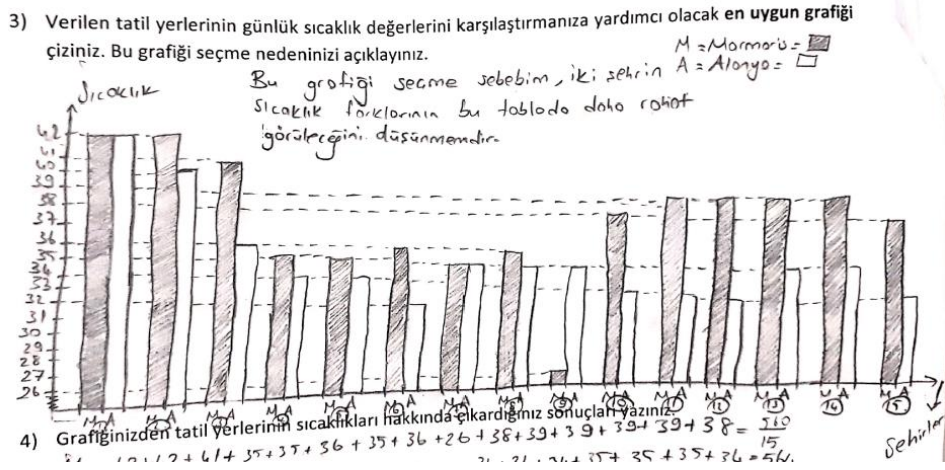 3) Verilen tatil yerlerinin günlük sıcaklık değerlerini karşılaştırmanıza yardımcı olacak en uygun grafiği
çiziniz. Bu grafiği seçme nedeninizi açıklayınız.
M = Marmaris =
A = Alanya =
Bu grafiği seçme sebebim, iki şehrin
sıcaklık farklarının bu tabloda daha rahat
görüleceğini düşünmemdir.
Sıcaklık
42
41
40
39
38
37
36
35
34
33
32
31
30
29
28
27
26
M A M A M A M A M A M A M A M A M A M A M A M A M A M A M A
Şehirler
4) Grafiğinizden tatil yerlerinin sıcaklıkları hakkında çıkardığımız sonuçları yazınız.
+ 41 + 35 + 35 + 36 + 35 + 36 + 26 + 38 + 39 + 39 + 39 + 39 + 38 = 560
15
35 + 35 + 36 =